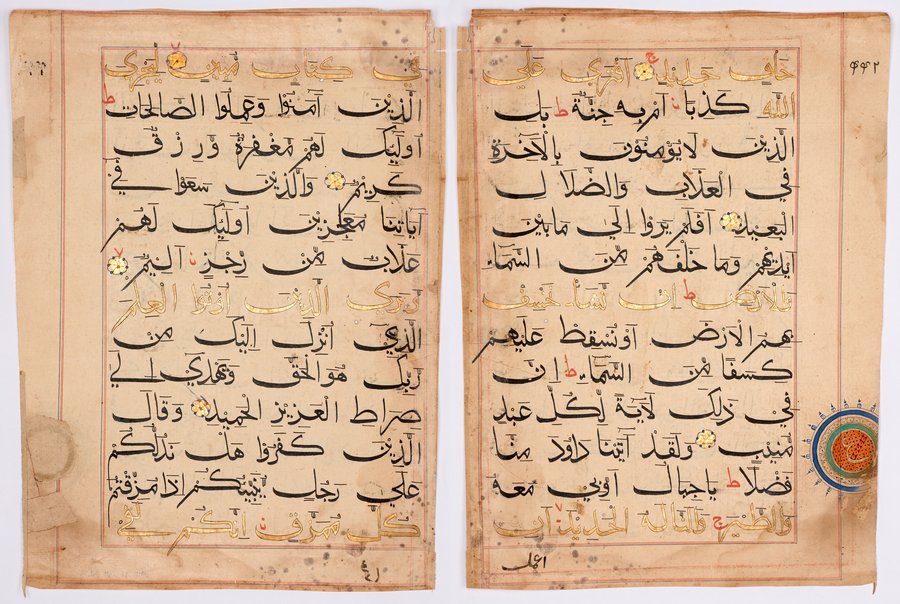 في كِتَابٍ مُبِينٍ لِيَجْزِيَ
الَّذِينَ آمَنُوا وَعَمِلُوا الصَّالِحَاتِ ط
أُولَئِكَ لَهُمْ مَغْفِرَةٌ وَرِزْقٌ
كَرِيمٌ وَالَّذِينَ سَعَوْا فِي
آيَاتِنَا مُعَجِزِينَ أُولَئِكَ لَهُمْ
عَذَابٌ مِنْ رِجْزٍ أَلِيمٌ
وَيَرَى الَّذِينَ أُوتُوا الْعِلْمَ
الَّذِي أُنْزِلَ إِلَيْكَ مِنْ
رَبِّكَ هُوَ الْحَقَّ وَيَهْدِي إِلَى
صِرَاطِ الْعَزِيزِ الْحَمِيدِ وَقَالَ
الَّذِينَ كَفَرُوا هَلْ نَدُلُّكُمْ
عَلَى رَجُلٍ يُنَبِّئُكُمْ إِذَا مُزِّقْتُمْ
كُلَّ مُمَزَّقٍ إِنَّكُمْ لَفِي
۴۴۲
خَلْقٍ جَدِيدٍ أَفْتَرَى عَلَى
اللَّهِ كَذِبًا أَمْ بِهِ جِنَّةٌ ط بَلِ
الَّذِينَ لَا يُؤْمِنُونَ بِالْآخِرَةِ
فِي الْعَذَابِ وَالضَّلَالِ
الْبَعِيدِ أَفَلَمْ يَرَوْا إِلَى مَا بَيْنَ
أَيْدِيهِمْ وَمَا خَلْفَهُمْ مِنَ السَّمَاءِ
وَالْأَرْضِ ط إِنْ نَشَأْ نَخْسِفْ
بِهِمُ الْأَرْضَ أَوْ نُسْقِطْ عَلَيْهِمْ
كِسَفًا مِنَ السَّمَاءِ ط إِنَّ
فِي ذَلِكَ لَآيَةً لِكُلِّ عَبْدٍ
مُنِيبٍ وَلَقَدْ آتَيْنَا دَاوُدَ مِنَّا
فَضْلًا ط يَا جِبَالُ أَوِّبِي مَعَهُ
وَالطَّيْرَ ج وَأَلَنَّا لَهُ الْحَدِيدَ أَنِ
اعمل